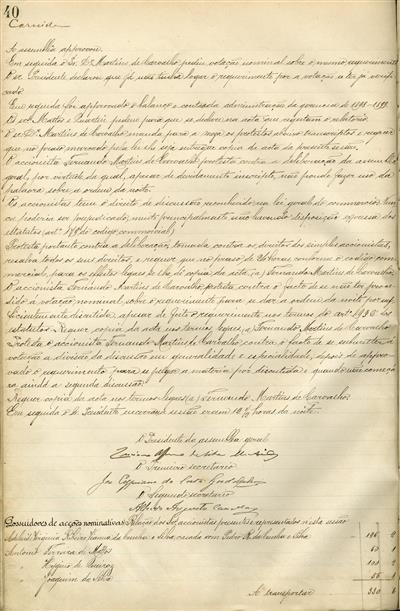 40
Carnide
A assemblia approvou.
Em seguida o Sr. Dr. Martins de Carvalho pediu votação nominal sobre o mesmo requerimento.
O Sr. Presidente declarou que já não tinha logar o requerimento por a votação se ter já verifi-
cado.
Em seguida foi approvado o balanço e contas da administração da gerencia de 1898-1899.
O sr. Mattos e pediu para que se declare na acta que rejeitam o relatorio.
O sr. Dr. Martins de Carvalho manda para a meza os protestos abaixo transcriptos e requer
que no praso marcado pela lei lhe seja entregue copia da acta da presente sessão.
O accionista Fernando Martins de Carvalho protesta contra a deliberação da assemblea
geral, por virtude da qual, apesar de devidamente inscripto, não poude fazer uso da
palavra sobre a ordem da noite.
Os accionistas teem o direito de discussão reconhecido na lei geral do commercio
poderia ser prejudicado, muito principalmente não havendo disposição expressa dos
estatutos (art. do codigo commercial)
Protesta portanto contra a deliberação, tomada contra os direitos dos simples accionistas,
resalva todos os seus direitos, e requer que no praso de 24 horas conforme o codigo com-
mercial, para os effeitos legaes se lhe dê copia da acta, (a) Fernando Martins de Carvalho.
O accionista Fernando Martins de Carvalho protesta contra o facto de se não ter proce-
dido á votação nominal, sobre o requerimento para se dar a ordem da noite por suf-
ficientemente discutida, apesar de feito o requerimento nos termos do art. dos
estatutos. Requer copia da acta nos termos legaes, (a) Fernando Martins de Carvalho.
Protesta o accionista Fernando Martins de Carvalho contra o facto de se submetter á
votação a divisão da discussão em generalidade e especialidade, depois de appro-
vado o requerimento para se julgar a materia por discutida e quando não começa-
ra ainda a segunda discussão.
Requer copia da acta nos termos legaes (a) Fernando Martins de Carvalho.
Em seguida o Sr. Presidente encerrou a sessão eram horas da noite.
O Presidente da assemblia geral
O Primeiro secretario
José Cypriano da Costa Goodolphim
O Segundo secretario
Alfredo Augusto
Possuidores de acções nominativas. Relação dos Srs. accionistas presentes e representados n'esta sessão
Adelaide Virginia Ribeiro Vianna da Cunha e Silva casada com Pedro A. da Cunha e Silva
Antonio Ferreira de Mattos
" Hygino de Queiroz
" Joaquim da Silva
A transportar